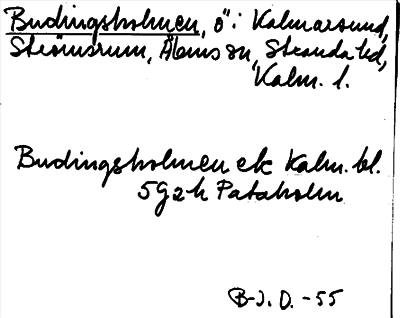 Budingsholmen, ö i Kalmarsund,
Strömsrum, Ålems sn, Stranda hd,
Kalm. l.
Budingsholmen ek Kalm. bl.
5G2h Pataholm
B-J. D. -55